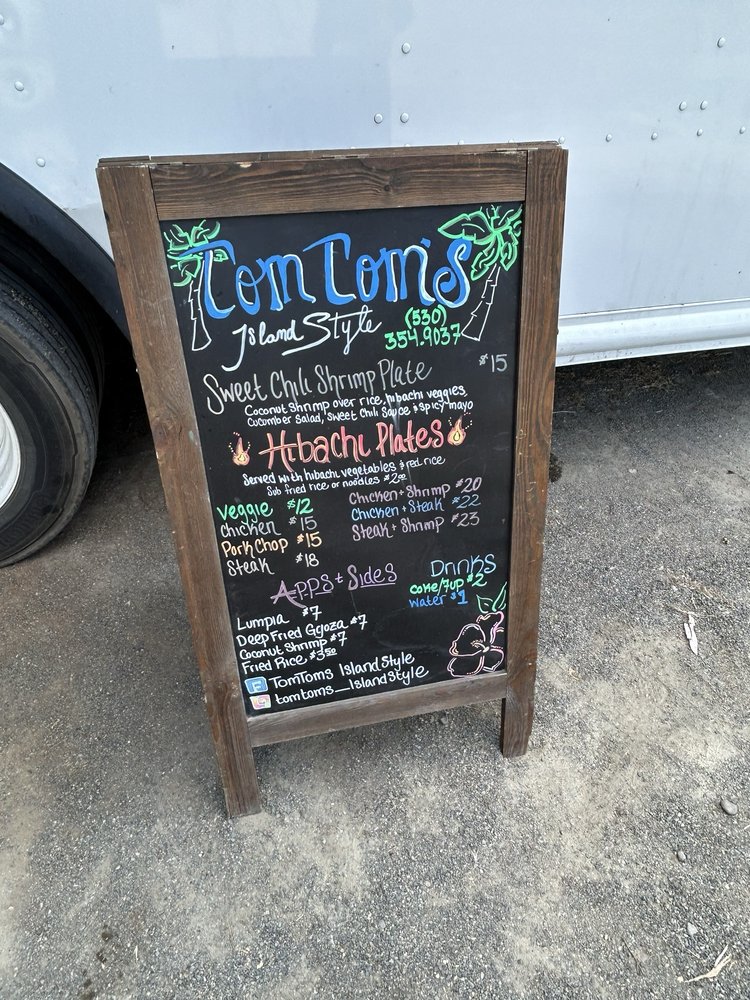 Tom Tom's
Island Style
(530)
354.9037
Sweet Chili Shrimp Plate $15
Coconut Shrimp over rice, hibachi veggies,
Cucomber Salad, Sweet Chili Sauce & Spicy mayo
Hibachi Plates
Served with hibachi vegetables & red rice
Sub fried rice or noodles $2.00
Veggie $12
Chicken $15
Pork Chop $15
Steak $18
Chicken + Shrimp $20
Chicken + Steak $22
Steak + Shrimp $23
Apps + Sides
Lumpia $7
Deep Fried Gyoza $7
Coconut Shrimp $7
Fried Rice $3.50
Drinks
Coke/7up $2
Water $1
TomToms Island Style
tomtoms_islandstyle